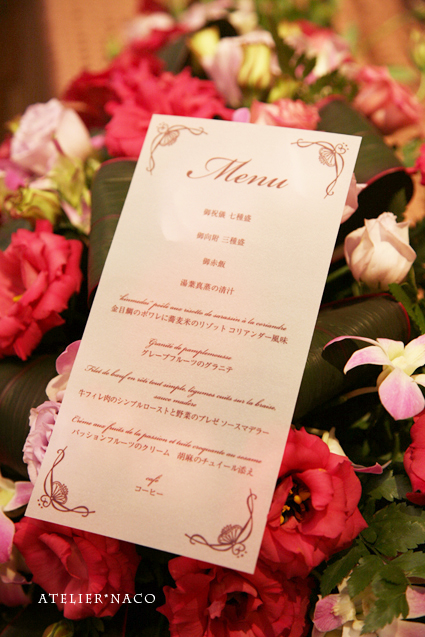 Menu
御祝儀 七種盛
御向附 三種盛
御赤飯
湯葉真蒸の清汁
"kinmedai" poêlé aux risotto de sarrasin à la coriandre
金目鯛のポワレに蕎麦米のリゾット コリアンダー風味
Granité de pamplemousse
グレープフルーツのグラニテ
Filet de bœuf en rôti tout simple, légumes cuits sur la braise,
sauce madère
牛フィレ肉のシンプルローストと野菜のブレゼ ソースマデラー
Crème aux fruits de la passion et tuile croquante au sésame
パッションフルーツのクリーム 胡麻のチュイール添え
café
コーヒー
ATELIER*NACO